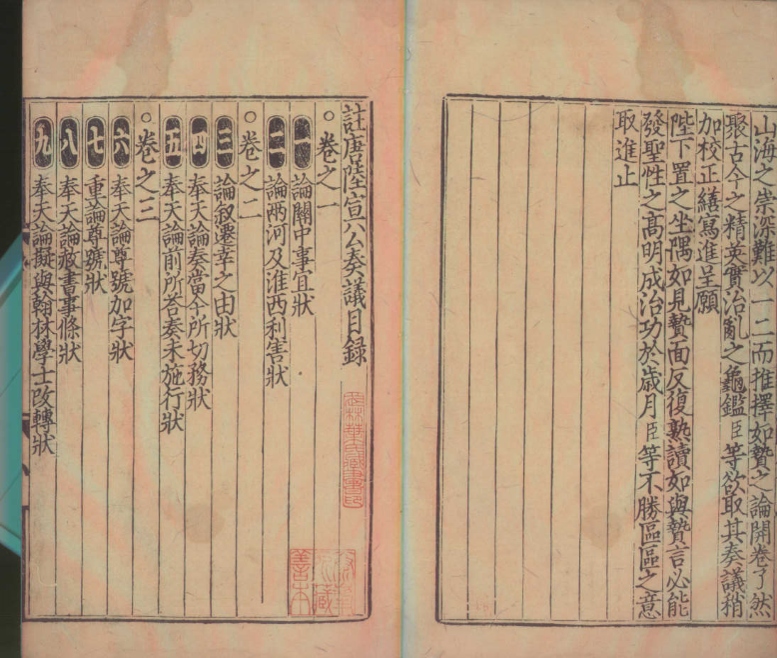 山海之崇深難以一二而推擇如贄之論開卷了然
聚古今之精英實治亂之龜鑑臣等欲取其奏議稍
加校正繕寫進呈願
陛下置之坐隅如見贄面反復熟讀如與贄言必能
發聖性之高明成治功於歲月臣等不勝區區之意
取進止
註唐陸宣公奏議目錄
○卷之一
一 論關中事宜狀
二 論兩河及淮西利害狀
○卷之二
三 論叙遷幸之由狀
四 奉天論奏當今所切務狀
五 奉天論前所答奏未施行狀
○卷之三
六 奉天論尊號加字狀
七 重論尊號狀
八 奉天論赦書事條狀
九 奉天論擬與翰林學士改轉狀